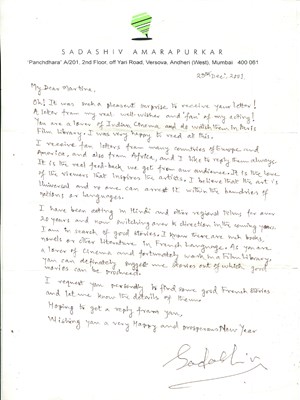 SADASHIV AMARAPURKAR
'Panchdhara' A/201, 2nd Floor, off Yari Road, Versova, Andheri (West), Mumbai 400 061
25th Dec', 2001.
My Dear Martine,
Oh! It was such a pleasant surprise to receive your letter!
A letter from my real well-wisher and 'fan' of my acting!
You are a lover of Indian Cinema and do watch them in Paris
Film Library. I was very happy to read all this.
I receive fan letters from many countries of Europe, and
America, and also from Africa, and I like to reply them always.
It is the real feed-back we get from our audience. It is the love
of the viewers that inspires the artists. I believe that the art is
Universal and no one can arrest it within the boundries of
nations or languages.
I have been acting in Hindi and other regional films for over
20 years and now switching over to direction in the coming year.
I am in search of good stories. I know there are such books,
novels or other literature in French Language. As you are
a lover of cinema and fortunately work in a Film Library,
you can definately suggest me stories out of which good
movies can be produced.
I request you personally to find some good French stories
and let me know the details of them.
Hoping to get a reply from you,
Wishing you a very Happy and prosperous New Year
Sadashiv